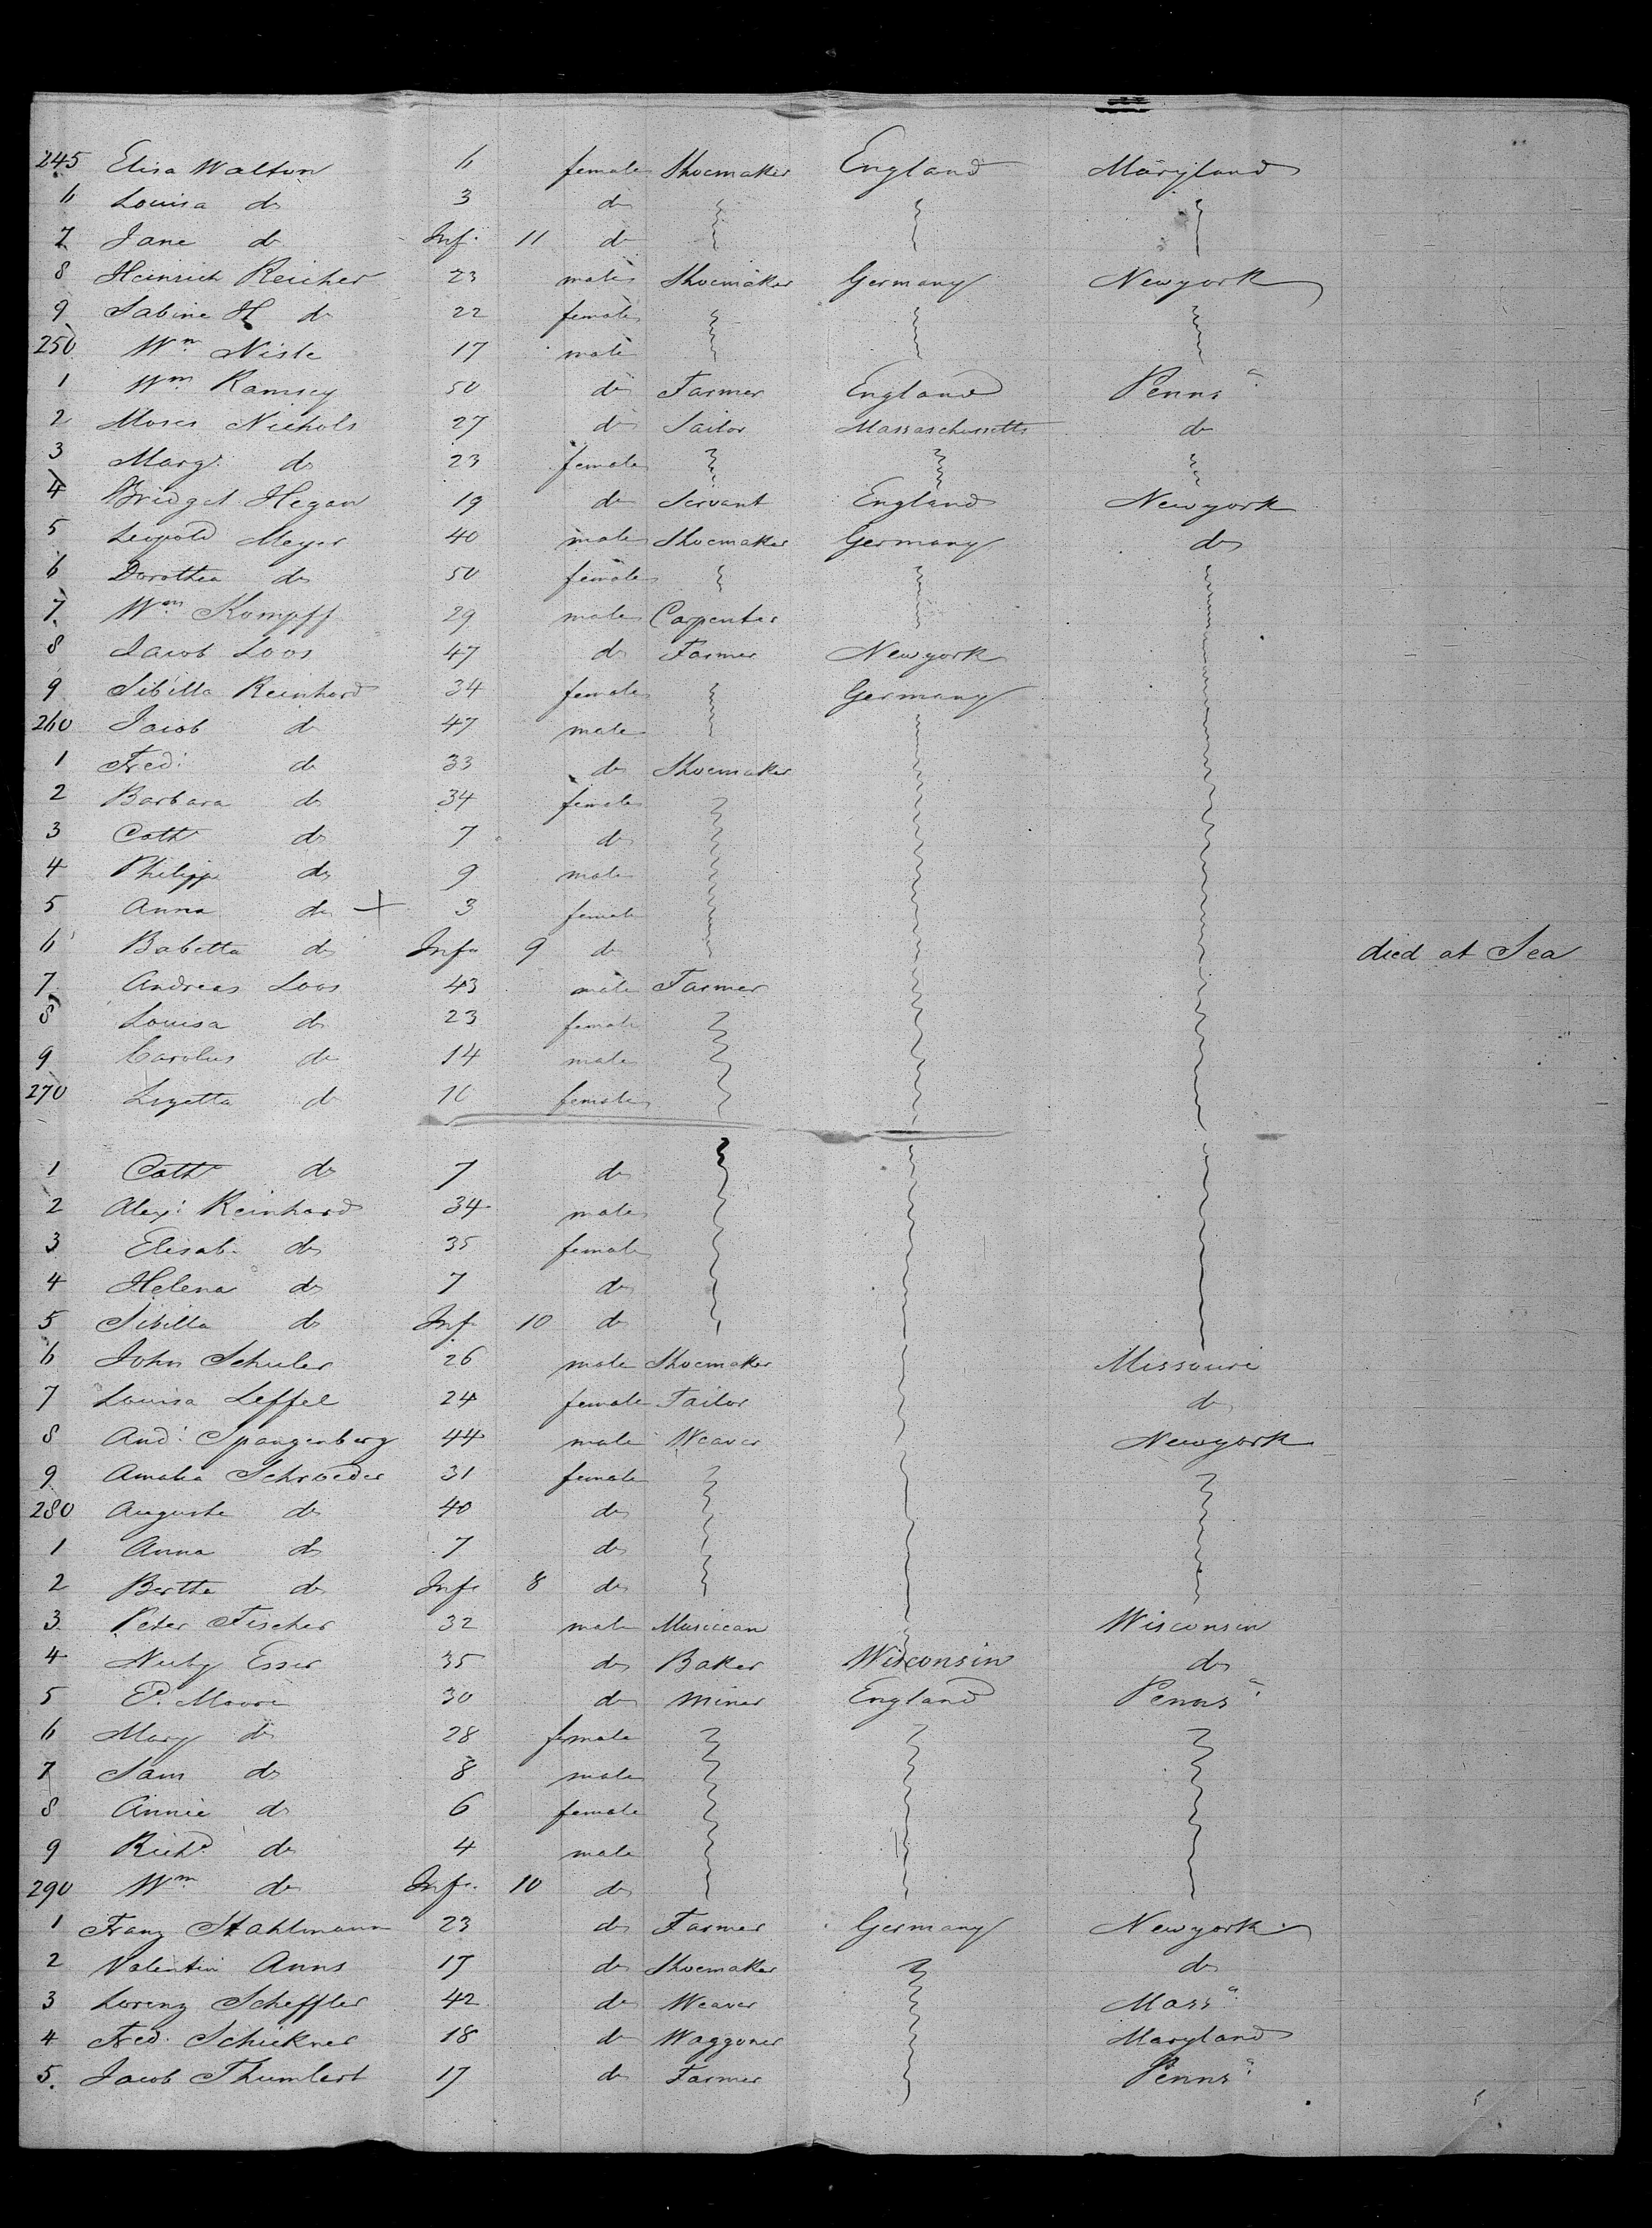 245 Elisa Walton 6 female Shoemaker England Maryland
6 Louisa do 3 do
7 Jane do Inf. 11 do
8 Heinrich Reicher 23 male Shoemaker Germany Newyork
9 Sabine H do 22 female
250 Wm Nisle 17 male
1 Wm Ramsey 50 do Farmer England Penns a
2 Moses Nichols 27 do Sailor Massaschussetts do
3 Marg. do 23 female
4 Bridget Hegan 19 do Servant England Newyork
5 Leopold Meyer 40 male Shoemaker Germany do
6 Dorothea do 50 female
7 Wm Kompff 29 male Carpenter
8 Jacob Loos 47 do Farmer Newyork
9 Sibilla Reinhard 34 female Germany
260 Jacob do 47 male
1 Fred: do 33 do Shoemaker
2 Barbara do 34 female
3 Cath do 7 do
4 Philipp do 9 male
5 Anna do + 3 female
6 Babetta do Inf. 9 do died at Sea
7 Andreas Loos 43 male Farmer
8 Louisa do 23 female
9 Carolus do 14 male
270 do female
1 Cath do 7 do
2 Alex: Reinhard 34 male
3 Elisab. do 35 female
4 Helena do 7 do
5 Sibilla do Inf. 10 do
6 John Schuler 26 male Shoemaker Missouri
7 Louisa Leffel 24 female Tailor do
8 And: Spangenberg 44 male Weaver Newyork
9 Amalia Schroeder 31 female
280 Auguste do 40 do
1 Anna do 7 do
2 Bertha do Inf. 8 do
3 Peter Fischer 32 male Musiccan Wisconsin
4 Esser 35 do Baker Wisconsin do
5 P. Moore 30 do Miner England Penns a
6 Mary do 28 female
7 Sam do 8 male
8 Annie do 6 female
9 Richd do 4 male
290 Wm do Inf. 10 do
1 Franz Stahlmann 23 do Farmer Germany Newyork
2 Valentin Anns 17 do Shoemaker do
3 Lorenz Scheffler 42 do Weaver Mass a
4 Fred. Schickner 18 do Waggoner Maryland
5. Jacob Thumlert 17 do Farmer Penns a